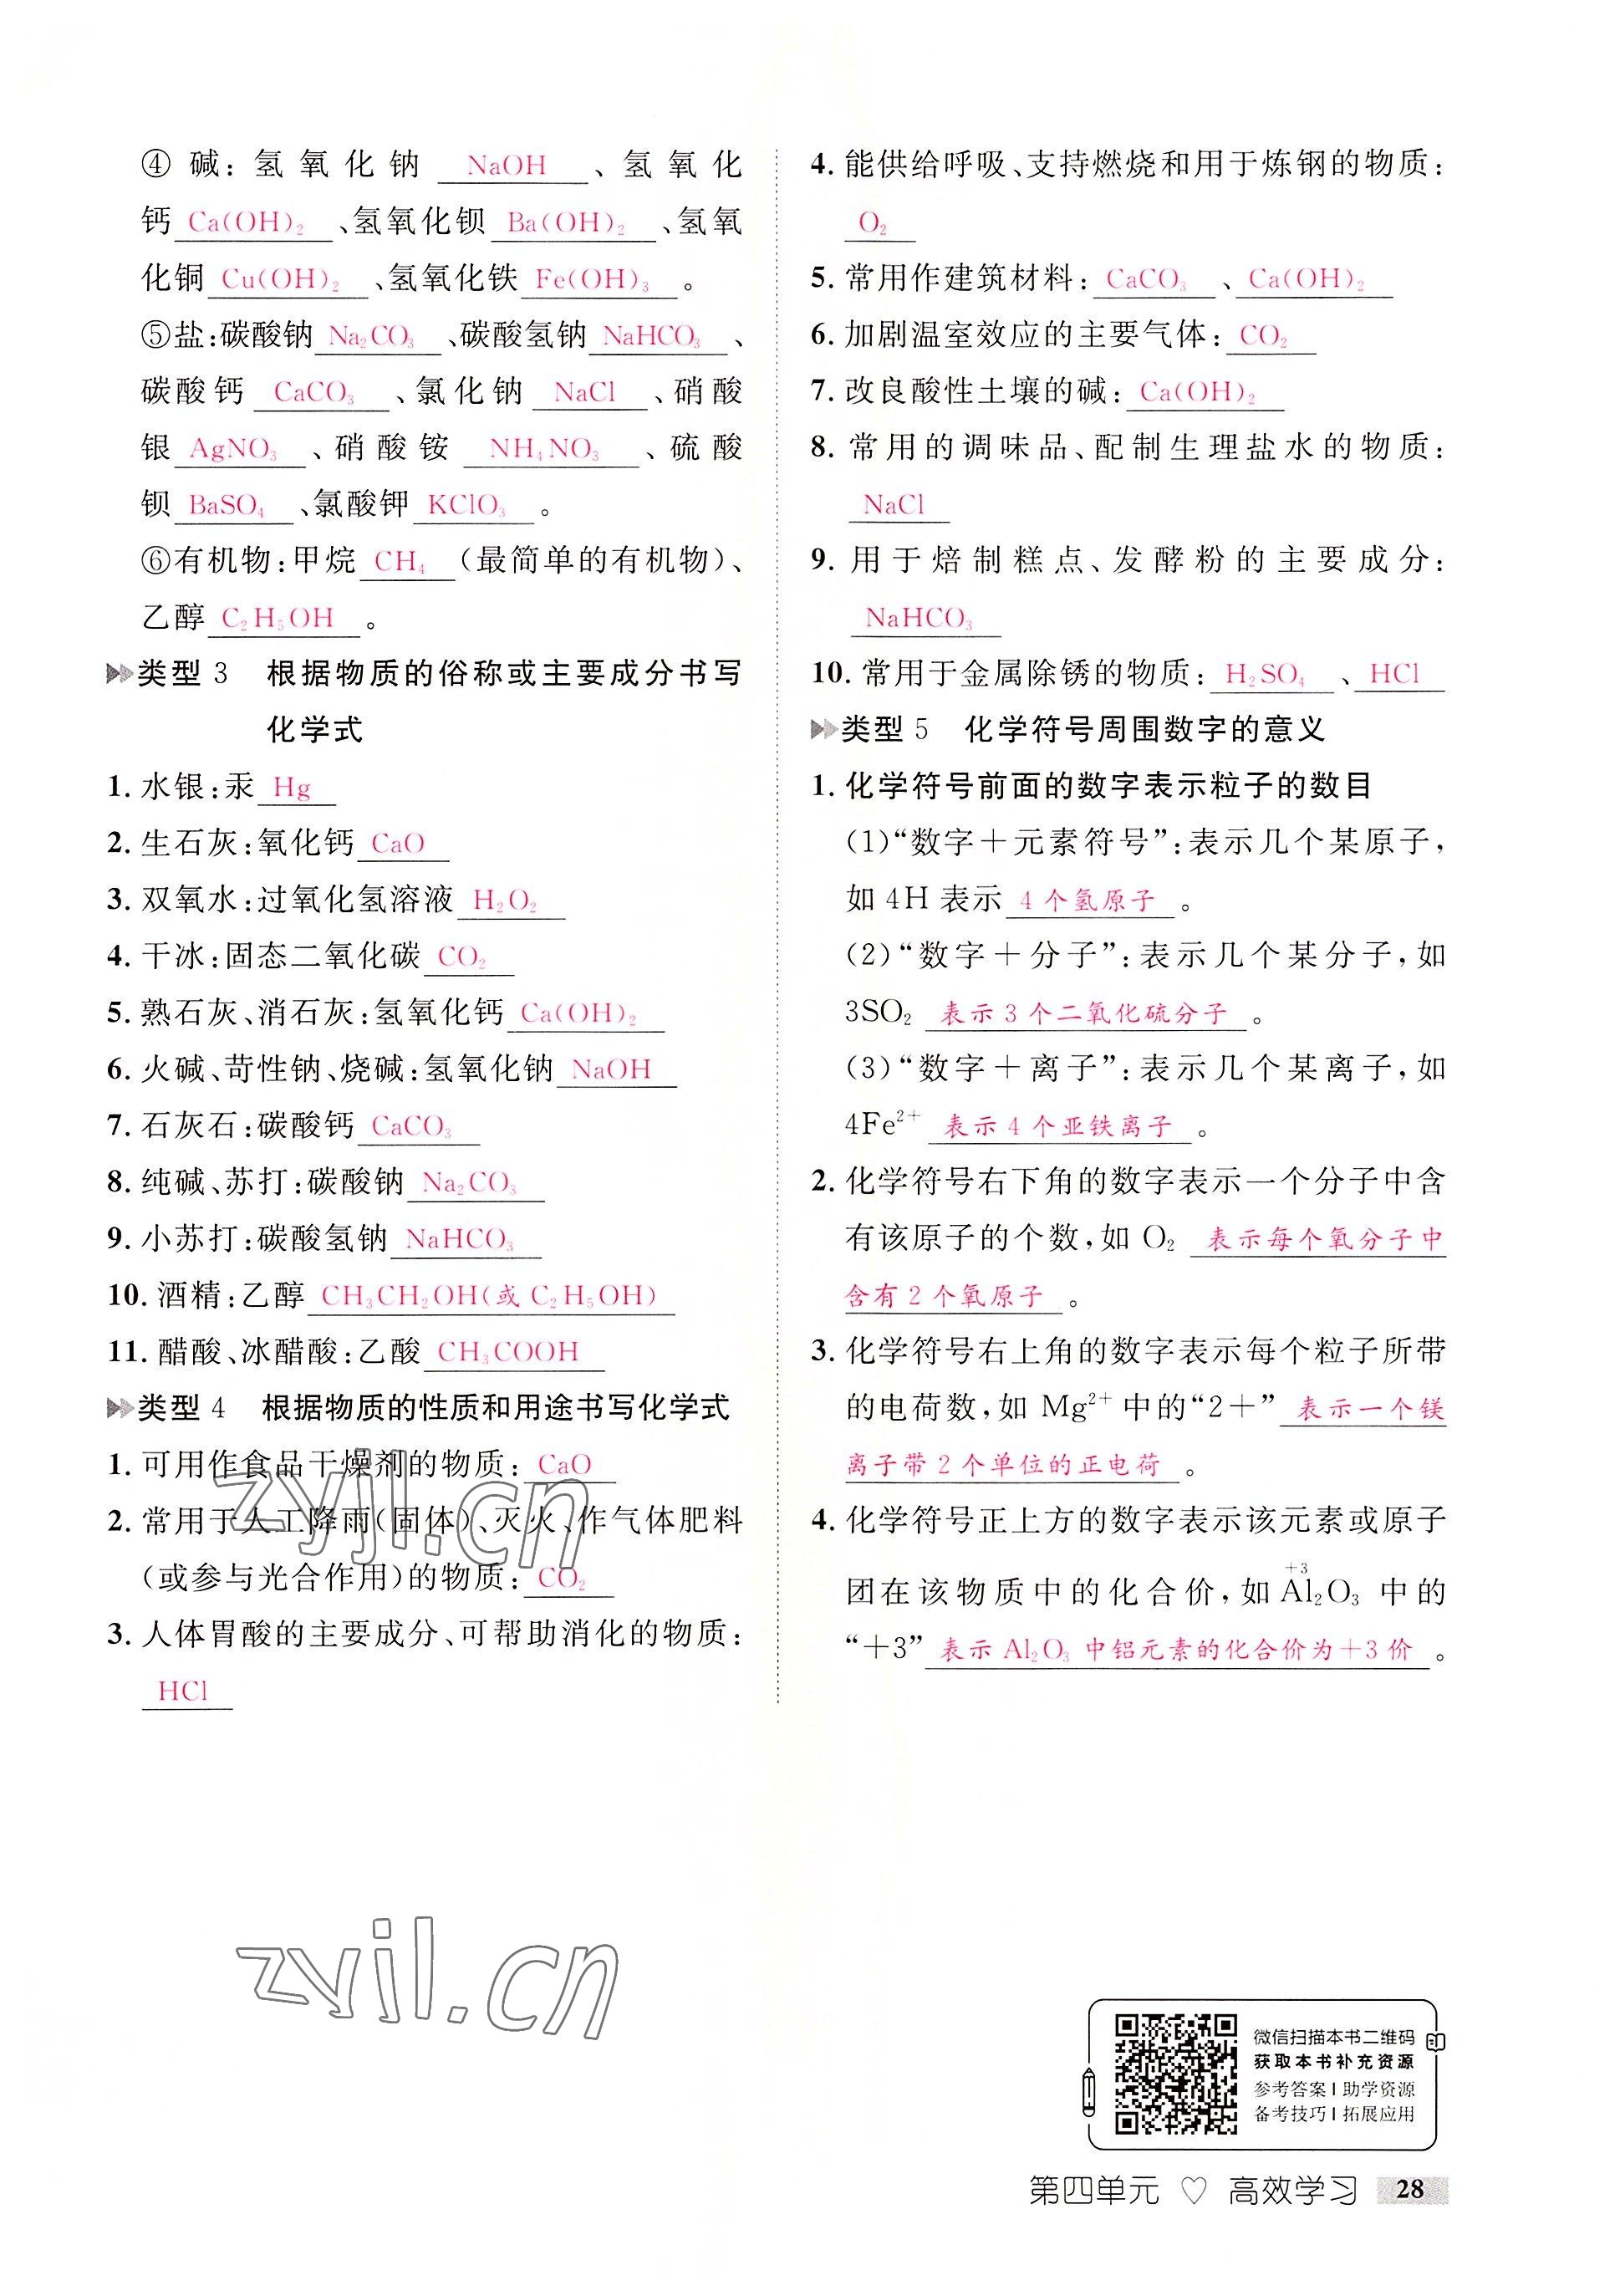 ④碱:氢氧化钠 NaOH 、氢氧化
钙 Ca(OH)₂ 、氢氧化钡 Ba(OH)₂ 、氢氧
化铜 Cu(OH)₂ 、氢氧化铁 Fe(OH)₃ 。
⑤盐:碳酸钠 Na₂CO₃ 、碳酸氢钠 NaHCO₃ 、
碳酸钙 CaCO₃ 、氯化钠 NaCl 、硝酸
银 AgNO₃ 、硝酸铵 NH₄NO₃ 、硫酸
钡 BaSO₄ 、氯酸钾 KClO₃ 。
⑥有机物:甲烷 CH₄ (最简单的有机物)、
乙醇 C₂H₅OH 。
类型3 根据物质的俗称或主要成分书写
化学式
1. 水银:汞 Hg
2. 生石灰:氧化钙 CaO
3. 双氧水:过氧化氢溶液 H₂O₂
4. 干冰:固态二氧化碳 CO₂
5. 熟石灰、消石灰:氢氧化钙 Ca(OH)₂
6. 火碱、苛性钠、烧碱:氢氧化钠 NaOH
7. 石灰石:碳酸钙 CaCO₃
8. 纯碱、苏打:碳酸钠 Na₂CO₃
9. 小苏打:碳酸氢钠 NaHCO₃
10. 酒精:乙醇 CH₃CH₂OH(或 C₂H₅OH)
11. 醋酸、冰醋酸:乙酸 CH₃COOH
类型4 根据物质的性质和用途书写化学式
1. 可用作食品干燥剂的物质: CaO
2. 常用于人工降雨(固体)、灭火、作气体肥料
(或参与光合作用)的物质: CO₂
3. 人体胃酸的主要成分、可帮助消化的物质:
HCl
4. 能供给呼吸、支持燃烧和用于炼钢的物质:
O₂
5. 常用作建筑材料: CaCO₃ 、 Ca(OH)₂
6. 加剧温室效应的主要气体: CO₂
7. 改良酸性土壤的碱: Ca(OH)₂
8. 常用的调味品、配制生理盐水的物质:
NaCl
9. 用于焙制糕点、发酵粉的主要成分:
NaHCO₃
10. 常用于金属除锈的物质: H₂SO₄ 、 HCl
类型5 化学符号周围数字的意义
1. 化学符号前面的数字表示粒子的数目
(1)“数字+元素符号”:表示几个某原子,
如 4H 表示 4 个氢原子 。
(2)“数字+分子”:表示几个某分子,如
3SO₂ 表示 3 个二氧化硫分子 。
(3)“数字+离子”:表示几个某离子,如
4Fe²⁺ 表示 4 个亚铁离子 。
2. 化学符号右下角的数字表示一个分子中含
有该原子的个数,如 O₂ 表示每个氧分子中
含有 2 个氧原子 。
3. 化学符号右上角的数字表示每个粒子所带
的电荷数,如 Mg²⁺ 中的“2+” 表示一个镁
离子带 2 个单位的正电荷 。
4. 化学符号正上方的数字表示该元素或原子
+3
团在该物质中的化合价,如 Al₂O₃ 中的
“+3” 表示 Al₂O₃ 中铝元素的化合价为+3 价 。
zyjl.cn
zyjl.cn
微信扫描本书二维码
获取本书补充资源
参考答案 | 助学资源
备考技巧 | 拓展应用
第四单元 ♡ 高效学习 28